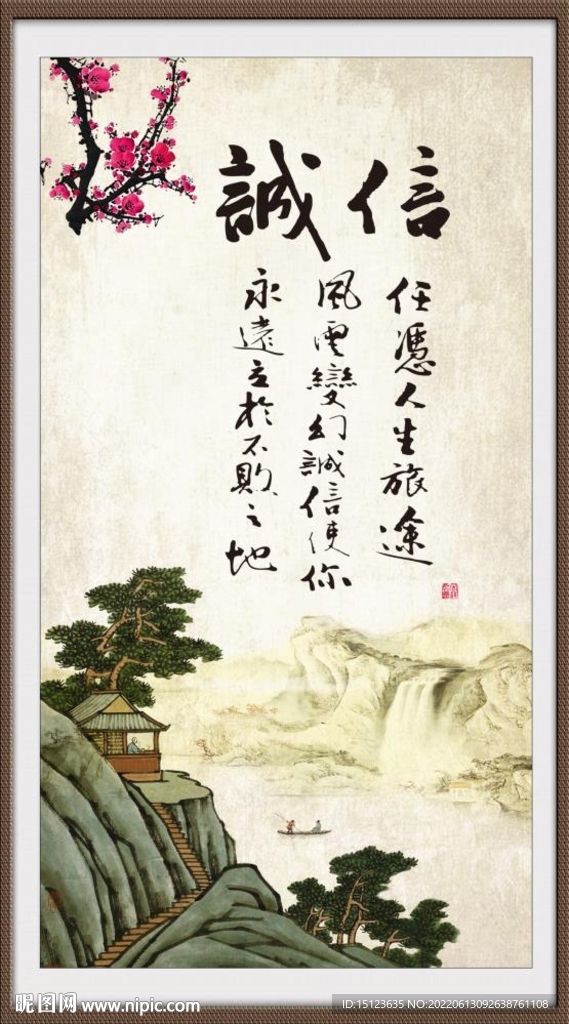 誠信
任憑人生旅途
風雲變幻誠信使你
永遠立於不敗之地
昵图网 www.nipic.com
ID:15123635 NO:20220613092638761108